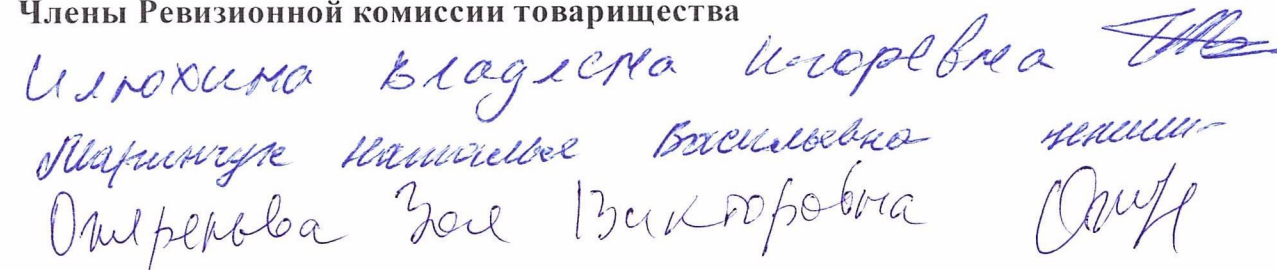 Члены Ревизионной комиссии товарищества
Илюхина Владлена Игоревна
Маринчук Наталья Васильевна
Зоя Викторовна